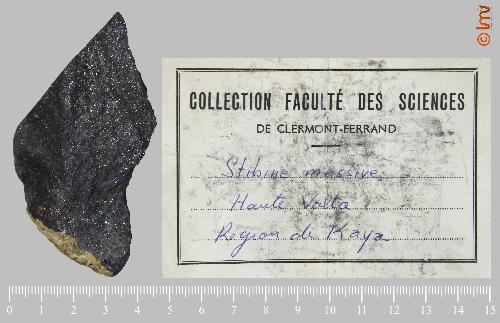 © lmv
COLLECTION FACULTÉ DES SCIENCES
DE CLERMONT-FERRAND
Stibine massive
Haute Volta
Région de Kaya
0 1 2 3 4 5 6 7 8 9 10 11 12 13 14 15